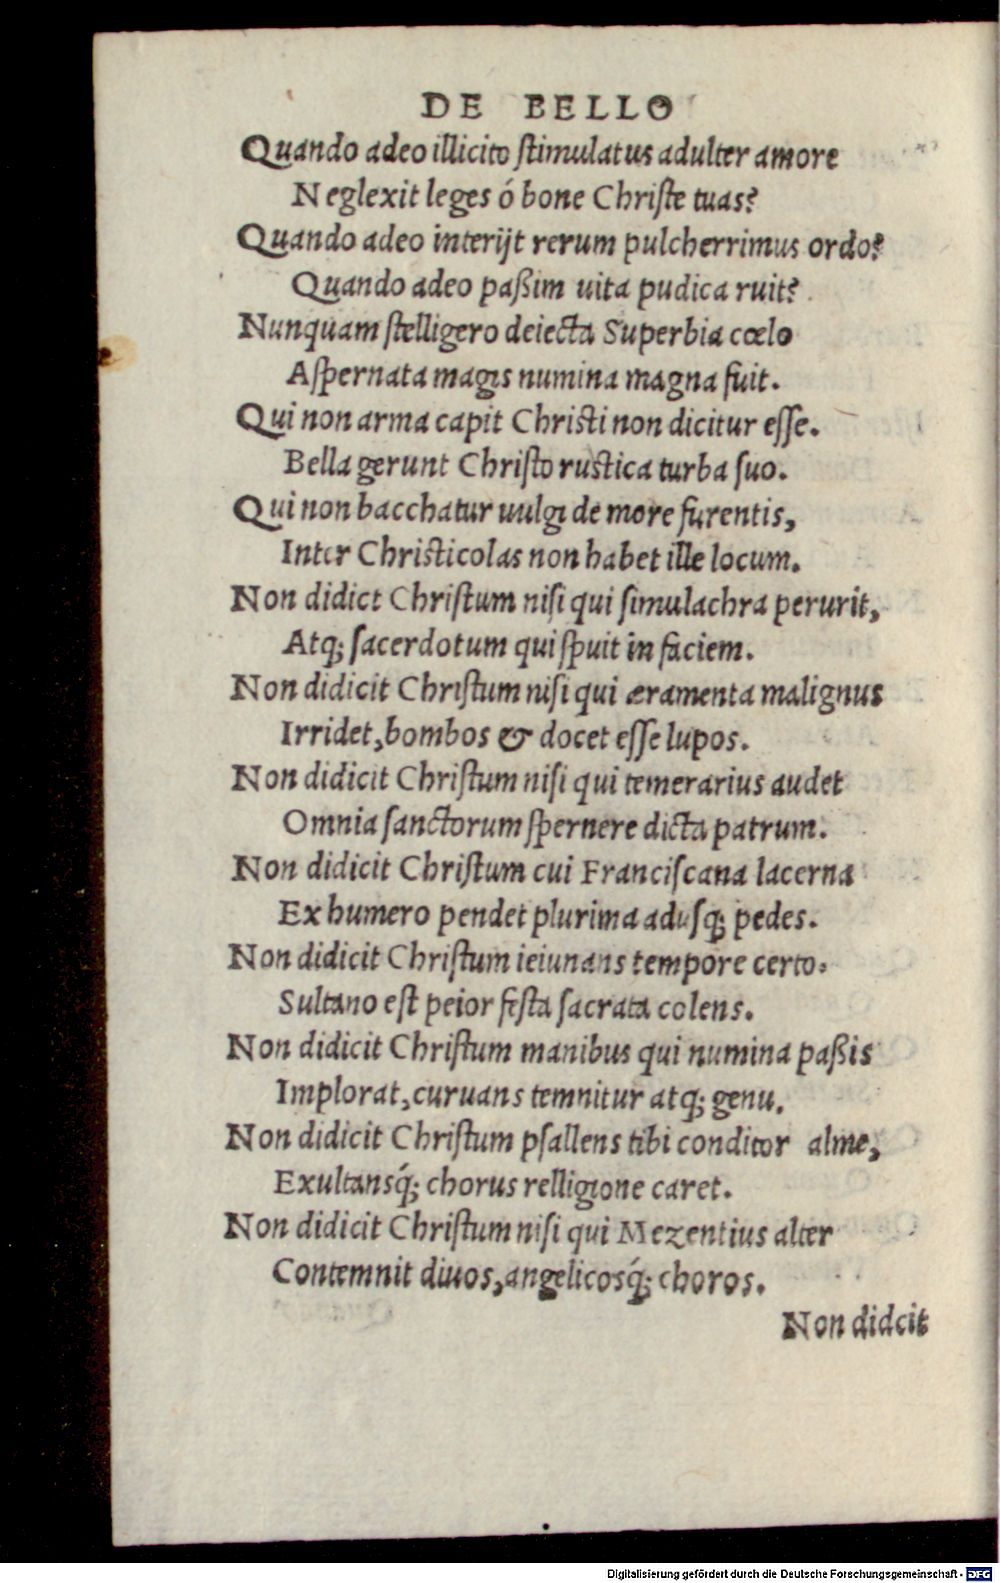 DE BELLO
Quando adeo illicito ſtimulatus adulter amore
Neglexit leges ó bone Chriſte tuas?
Quando adeo interijt rerum pulcherrimus ordo?
Quando adeo paßim uita pudica ruit?
Nunquam ſtelligero deiecta Superbia cœlo
Aſpernata magis numina magna fuit.
Qui non arma capit Chriſti non dicitur eſſe.
Bella gerunt Chriſto ruſtica turba ſuo.
Qui non bacchatur uulgi de more furentis,
Inter Chriſticolas non habet ille locum.
Non didict Chriſtum niſi qui ſimulachra perurit,
Atq; ſacerdotum qui ſpuit in faciem.
Non didicit Chriſtum niſi qui æramenta malignus
Irridet, bombos & docet eſſe lupos.
Non didicit Chriſtum niſi qui temerarius audet
Omnia ſanctorum ſpernere dicta patrum.
Non didicit Chriſtum cui Franciſcana lacerna
Ex humero pendet plurima aduſq; pedes.
Non didicit Chriſtum ieiunans tempore certo.
Sultano eſt peior feſta ſacrata colens.
Non didicit Chriſtum manibus qui numina paßis
Implorat, curuans temnitur atq; genu.
Non didicit Chriſtum pſallens tibi conditor alme,
Exultansq́; chorus relligione caret.
Non didicit Chriſtum niſi qui Mezentius alter
Contemnit diuos, angelicosq́; choros.
Non didcit
Digitalisierung gefördert durch die Deutsche Forschungsgemeinschaft - DFG